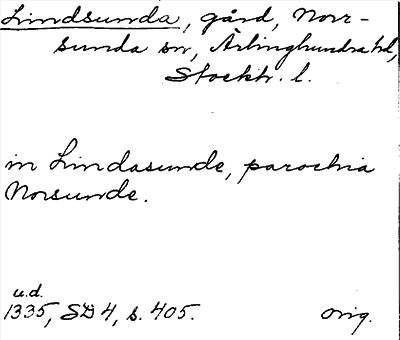 Lindsunda, gård, Norr-
sunda sn, Ärlinghundra hd,
Stockh. l.
in Lindasunde, parochia
Norsunde.
u.d.
1335, SD 4, s. 405. orig.